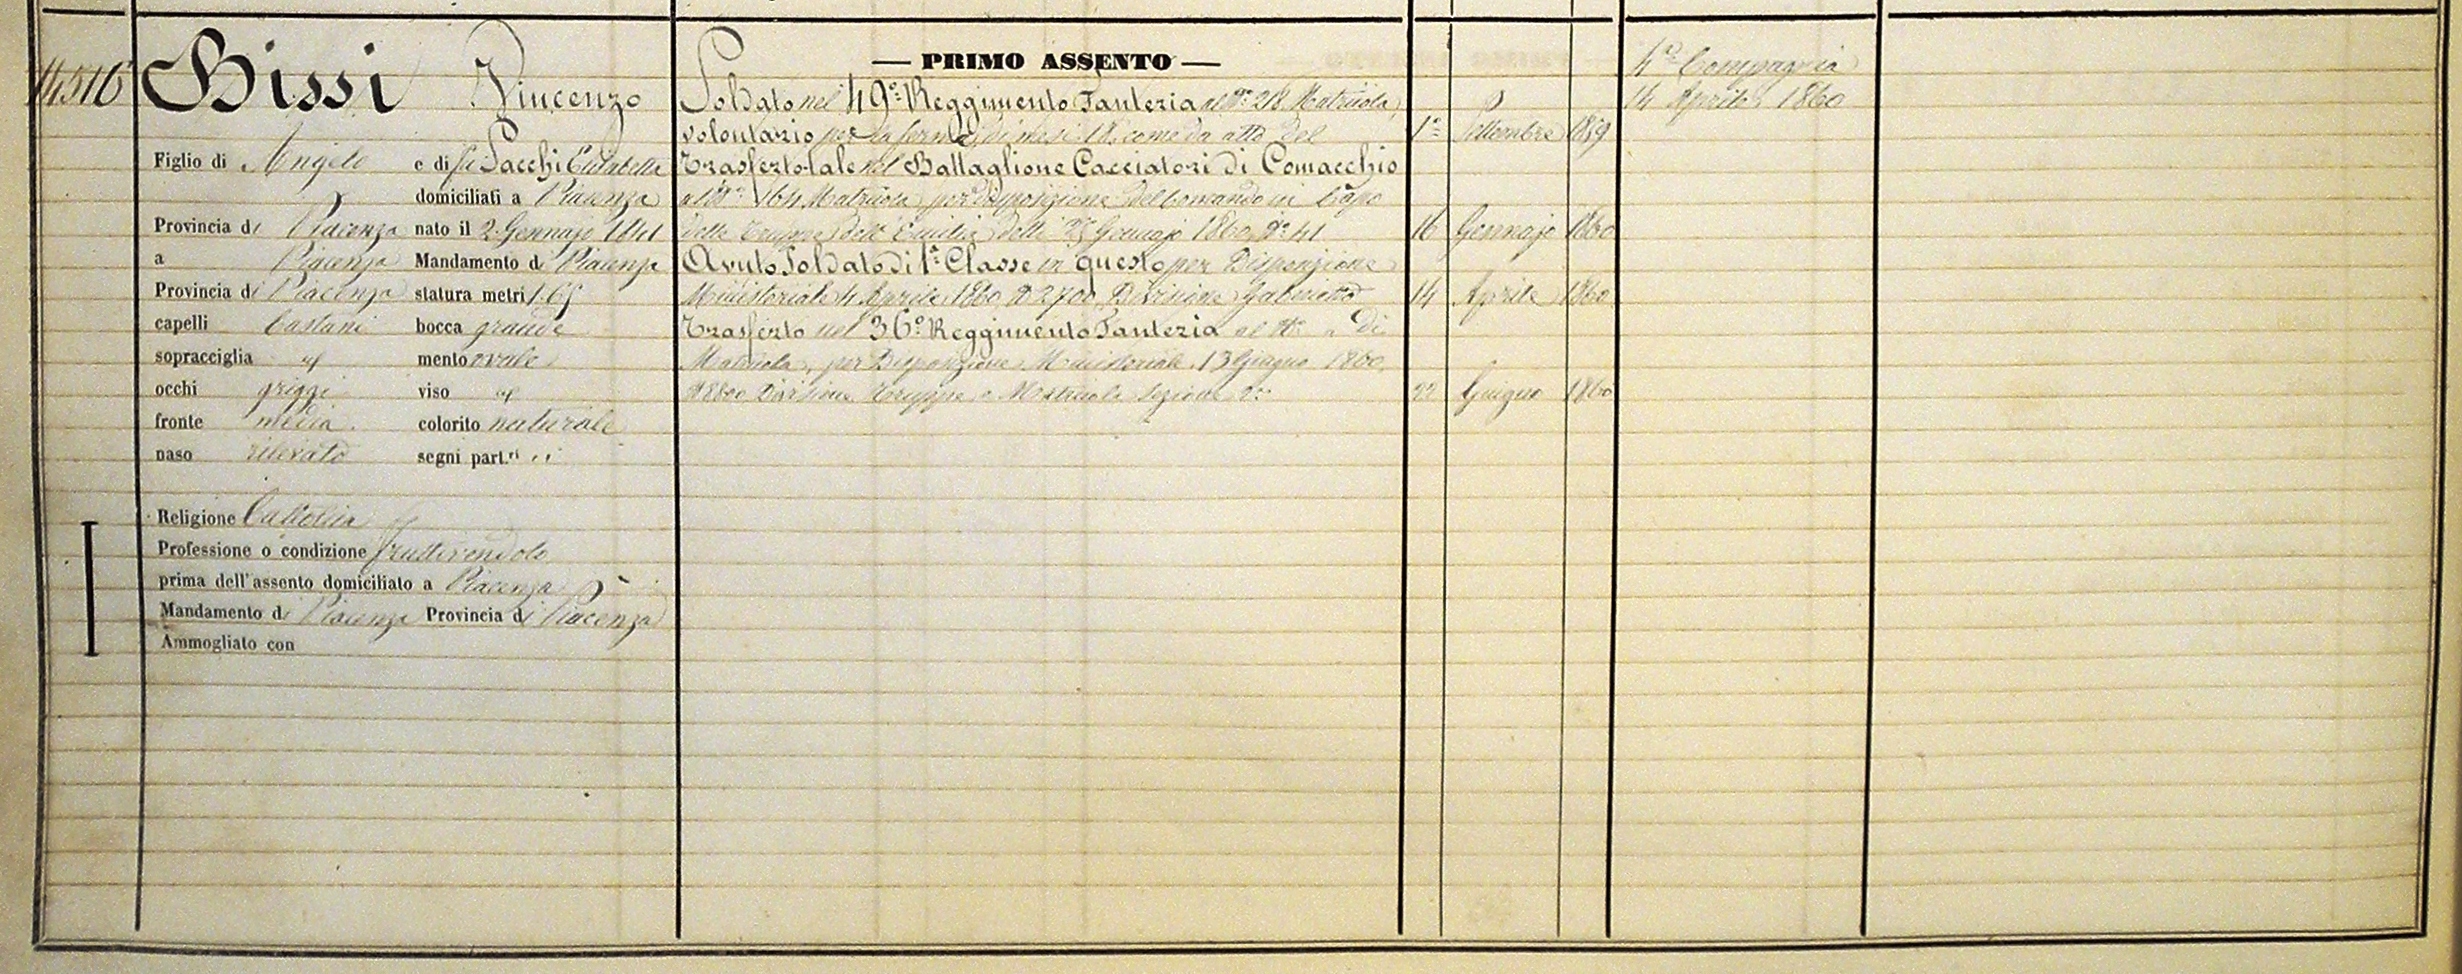 14516
Bissi Vincenzo
Figlio di Angelo e di fu Sacchi Elisabetta
domiciliati a Piacenza
Provincia di Piacenza nato il 2 Gennajo 1841
a Piacenza Mandamento di Piacenza
Provincia di Piacenza statura metri 1.65
capelli Castani bocca grande
sopracciglia id mento ovale
occhi griggi viso id
fronte media colorito naturale
naso rilevato segni part.ri
Religione Cattolica
Professione o condizione fruttivendolo
prima dell'assento domiciliato a Piacenza
Mandamento di Piacenza Provincia di Piacenza
Ammogliato con
— PRIMO ASSENTO —
Soldato nel 49º Reggimento Fanteria al Nº 218 Matricola,
volontario per la ferma di mesi 18, come da atto del 1º Settembre 1859
Trasferto tale nel Battaglione Cacciatori di Comacchio
al Nº 164 Matricola per disposizione del Comando in Capo
delle Truppe dell'Emilia delli Gennajo 1860 Nº 41 16 Gennajo 1860
Avuto Soldato di 1ª Classe in questo per Disposizione
Ministeriale 4 Aprile 1860 Nº 2700 Divisione Gabinetto 14 Aprile 1860
Trasferto nel 36º Reggimento Fanteria al Nº di
Matricola, per Disposizione Ministeriale 13 Giugno 1860,
N 8800 Divisione Truppe e Matricola Sezione 2ª 22 Giugno 1860
4ª Compagnia
14 Aprile 1860